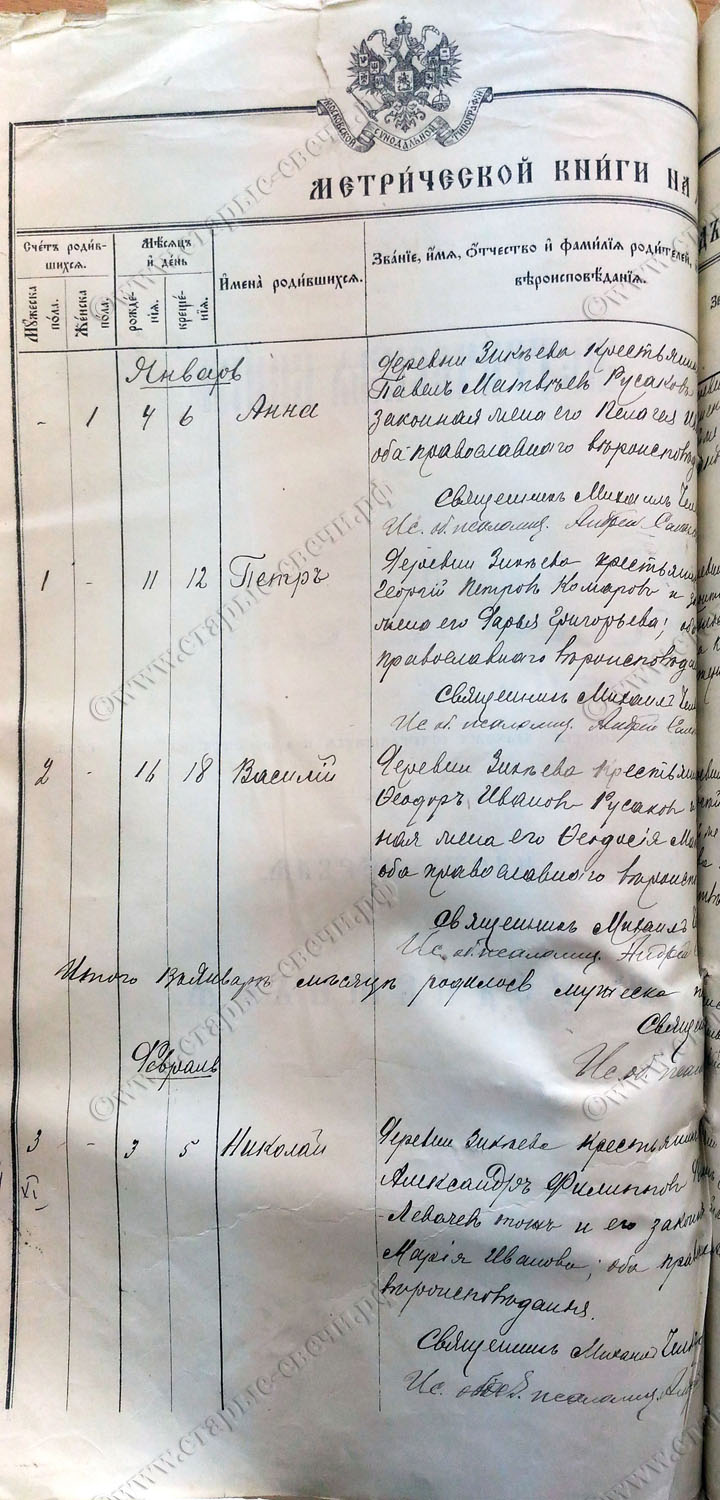 МОСКОВСКОЙ СѴНОДАЛЬНОЙ ТИПОГРАФІИ
МЕТРИ́ЧЕСКОЙ КНИ́ГИ НА
Сче́тъ роди́в-
шихся.
Мѣ́сяцъ
и҆ де́нь
И҆мена̀ роди́вшихся.
Зва́нїе, и҆́мя, ѻ҆́тчество и҆ фами́лїя роди́телей,
вѣроисповѣ́данїя.
Мꙋ́жеска по́ла.
Же́нска по́ла.
рожде́-нїя.
креще́-нїя.
Январь
- 1 4 6 Анна
Деревни Зикѣева крестьянин
Павелъ Матвѣевъ Русаковъ
законная жена его Пелагея
оба православнаго вѣроисповѣд
Священникъ Михаилъ
Ис. об. псаломщ. Андрей
1 - 11 12 Петръ
Деревни Зикѣева крестьянин
Георгій Петровъ Комаровъ и
жена его Дарья Григорьева;
православнаго вѣроисповѣдан
Священникъ Михаилъ
Ис. об. псаломщ. Андрей
2 - 16 18 Василій
Деревни Зикѣева крестьян
Ѳеодоръ Ивановъ Русаковъ
ная жена его Ѳеодосія
оба православнаго вѣроисп
Священникъ Михаилъ
Ис. об. псаломщ. Андрей
Итого въ Январѣ мѣсяцѣ родилось мужеска
Свящ
Ис. об. псал
Февраль
3 - 3 5 Николай
VI
Деревни Зикѣева крестьянин
Александръ Филипповъ
Левачевъ тожъ и его закон
Марія Иванова; оба прав
вѣроисповѣданія.
Священникъ Михаилъ
Ис. об. псаломщ.
©www.старые-свечи.рф